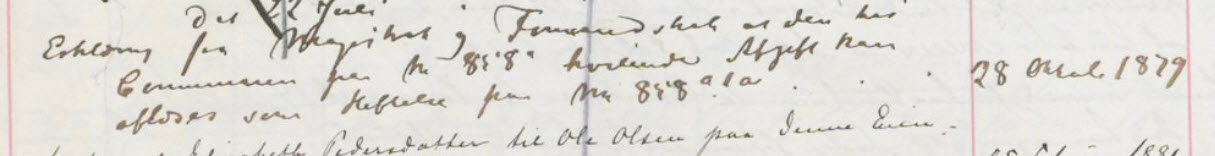 Dat 22 Juli
Erklæring fra Magistrat og Formandskab at den til
Communen fra No 858a hvilende Afgift kan
afløses som Heftelse paa No 858a.1a. . . 28 Oktob. 1879
Pedersdatter til Ole Olsen paa denne Eien-